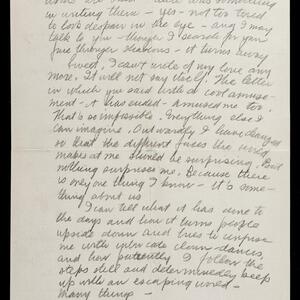 in writing them — yes — not too tired
to look despair in the eye — and I may
talk to you — though I search for you
fine through shadows — it turns away
Sweet, I can't write of my love any
more. It will not say itself. The letter
in which you said with a cool amuse-
ment — it was ended — amused me too.
That is so impossible. Everything else I
can imagine. Outwardly I have changed
so that the different faces the world
makes at me should be surprising. But
nothing surprises me. Because there
is only one thing I know — it's some-
thing about us
I can tell what it has done to
the days and how it turns people
upside down and tries to confuse
me with intricate clown-dances,
and how patiently I follow the
steps still and determinedly keep
up with an escaping world —
Many things —